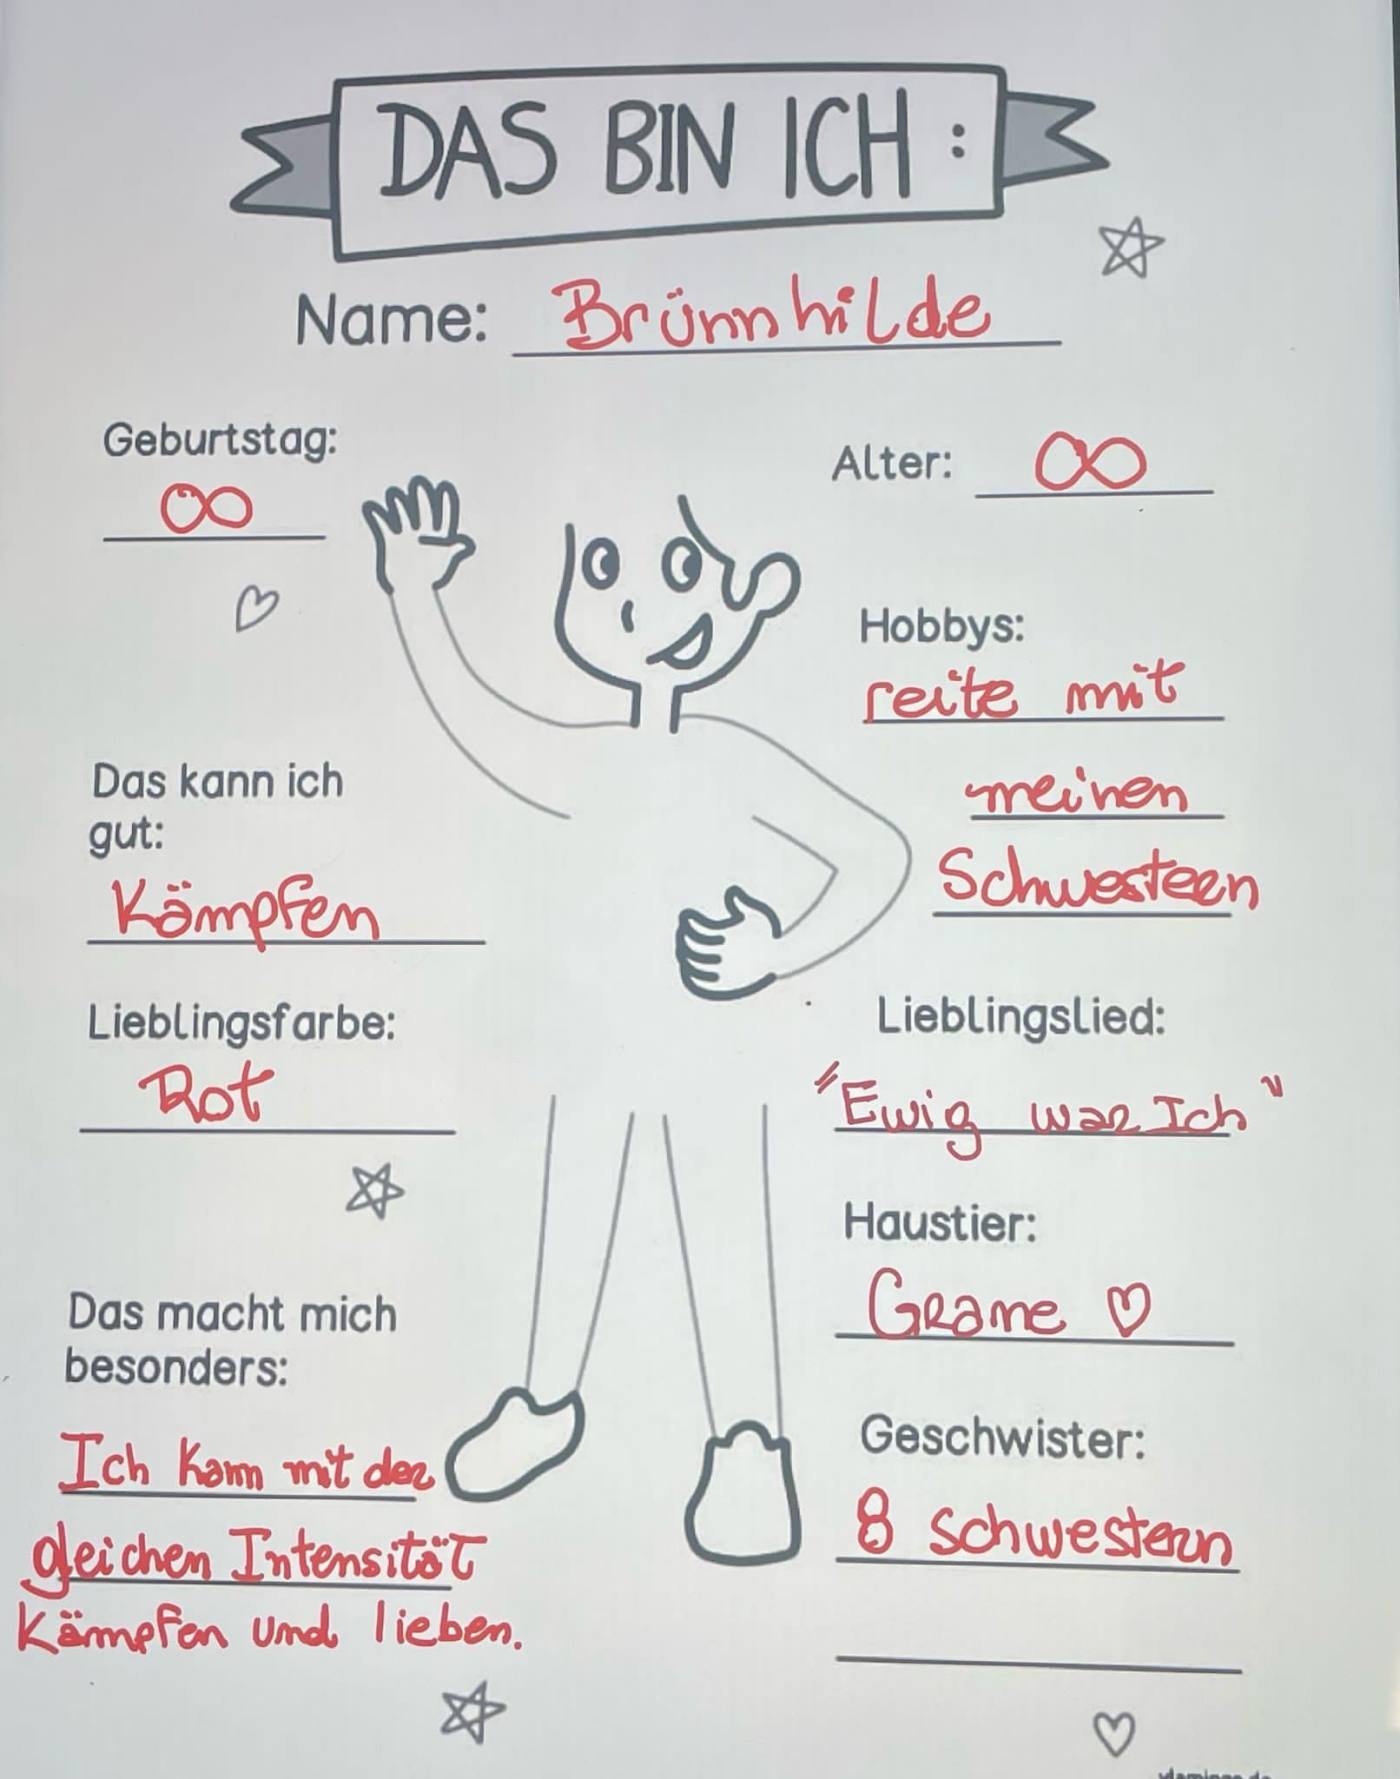 DAS BIN ICH :
Name: Brünnhilde
Geburtstag:
∞
Alter: ∞
Hobbys:
reite mit
meinen
Schwestern
Das kann ich
gut:
Kämpfen
Lieblingsfarbe:
Rot
Lieblingslied:
"Ewig war Ich"
Haustier:
Grane ♡
Das macht mich
besonders:
Ich kann mit der
gleichen Intensität
kämpfen und lieben.
Geschwister:
8 Schwestern